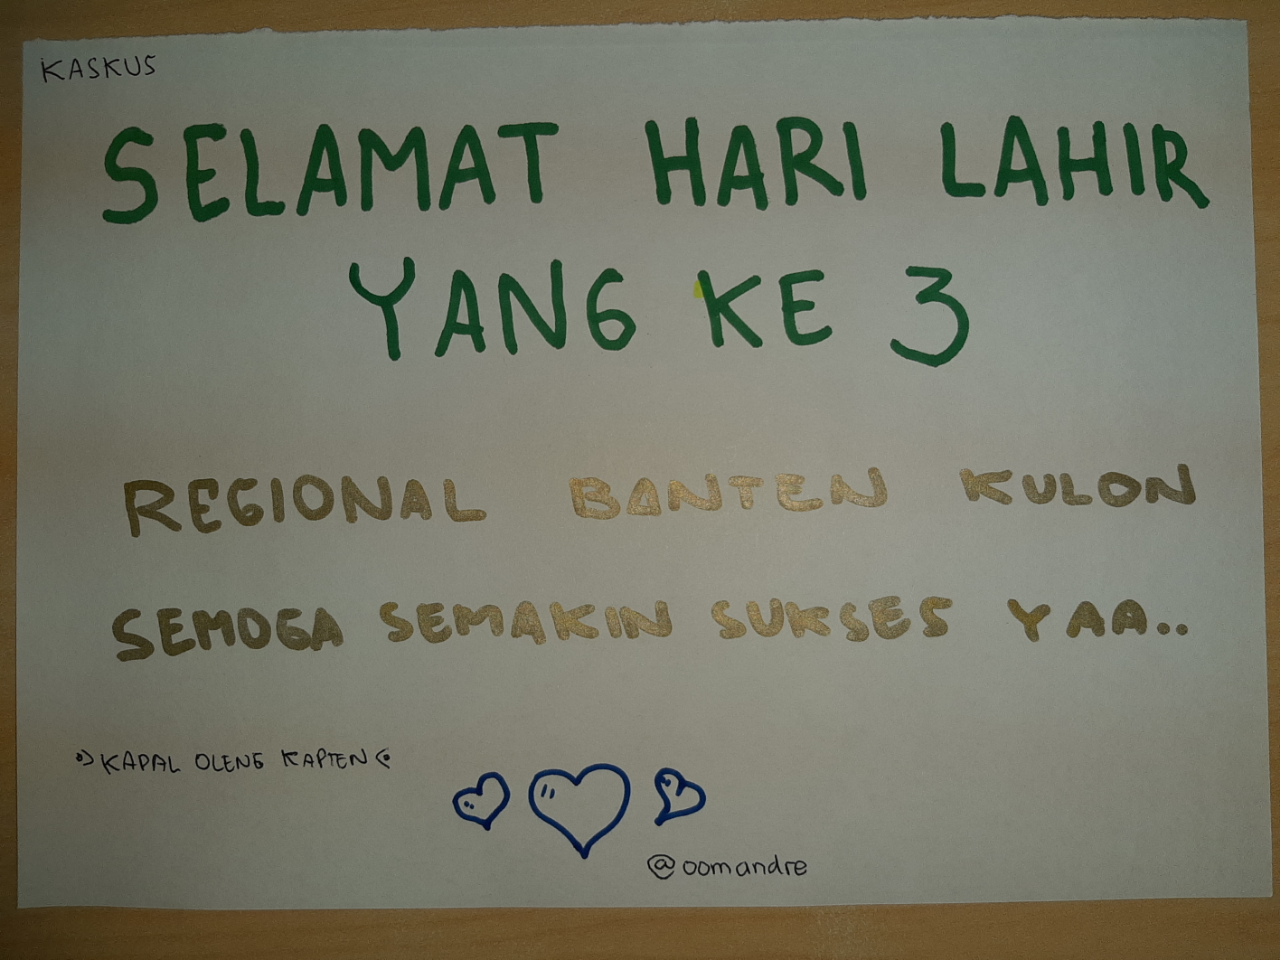 KASKUS
SELAMAT HARI LAHIR
YANG KE 3
REGIONAL BANTEN KULON
SEMOGA SEMAKIN SUKSES YAA..
•> KAPAL OLENG KAPTEN <•
@oomandre